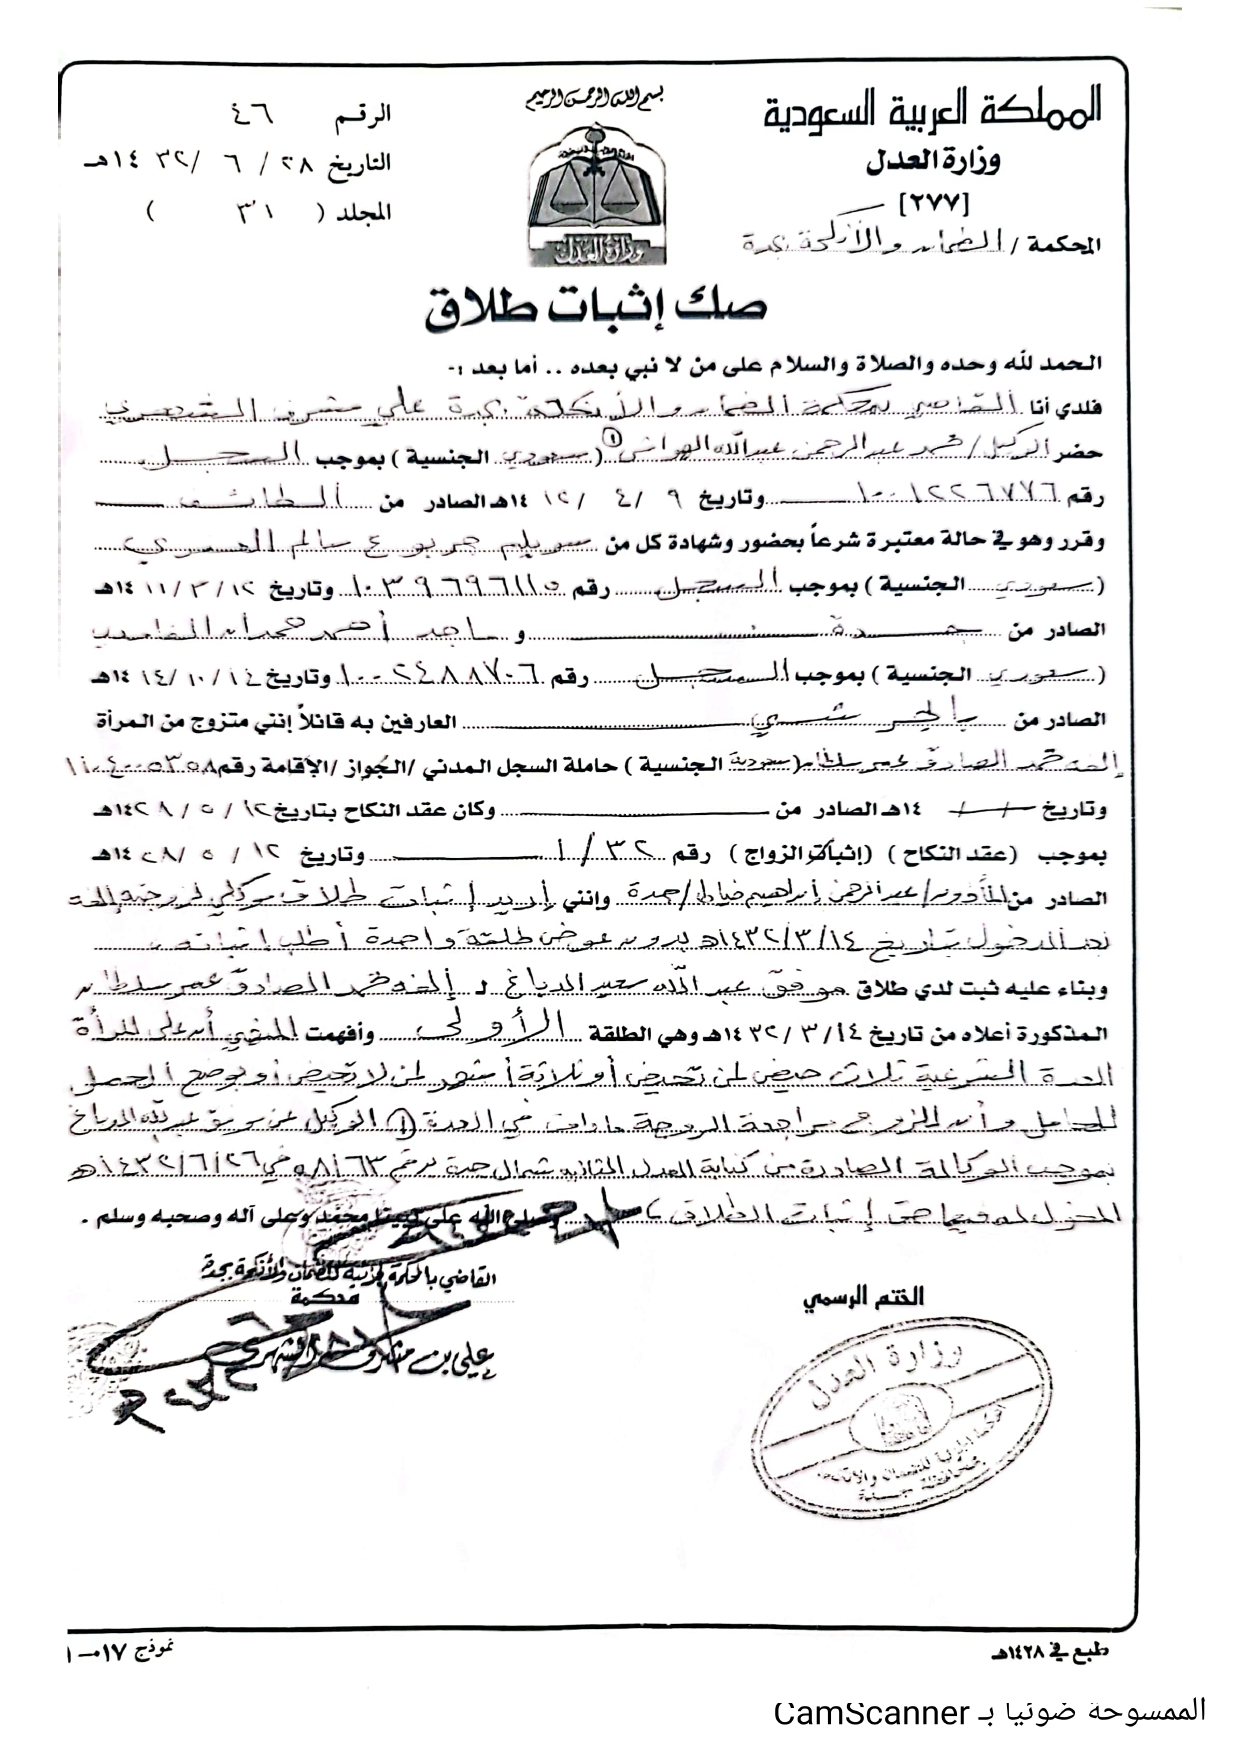 بسم الله الرحمن الرحيم
المملكة العربية السعودية
وزارة العدل
[٢٧٧]
المحكمة / الضمان والأنكحة بجدة
الرقم ٤٦
التاريخ ٢٨ / ٦ / ١٤٣٢هـ
المجلد ( ٣١ )
وزارة العدل
صك إثبات طلاق
الحمد لله وحده والصلاة والسلام على من لا نبي بعده .. أما بعد :-
فلدي أنا القاضي بمحكمة الضمان والأنكحة بجدة علي مشرف الشهري
حضر الوكيل / محمد عبدالرحمن عبدالله (١) (سعودي الجنسية) بموجب السجل
رقم ١٠٠١٢٢٦٧٧٦ وتاريخ ٩ / ٤ / ١٤١٢هـ الصادر من الطائف
وقرر وهو في حالة معتبرة شرعاً بحضور وشهادة كل من سويلم سالم
(سعودي الجنسية) بموجب السجل رقم ١٠٣٩٦٩٦١١٥ وتاريخ ١٢ / ٣ / ١٤١١هـ
الصادر من جدة و ماجد أحمد
(سعودي الجنسية) بموجب السجل رقم ١٠٠٢٤٨٨٧٠٦ وتاريخ ١٤ / ١٠ / ١٤١٤هـ
الصادر من العارفين به قائلاً إنني متزوج من المرأة
محمد الصادق عمر سلطان (سعودية الجنسية) حاملة السجل المدني / الجواز / الإقامة رقم ١٠٤٠٠٥٣٥٨
وتاريخ / / ١٤هـ الصادر من وكان عقد النكاح بتاريخ ١٢ / ٥ / ١٤٢٨هـ
بموجب (عقد النكاح) (إثبات الزواج) رقم ٣٢ / ١ وتاريخ ١٢ / ٥ / ١٤٢٨هـ
الصادر من المأذون / عبدالرحمن إبراهيم / جدة وإنني أريد إثبات طلاق موكلي لزوجته
بعد الدخول بتاريخ ١٤٣٢/٣/١٤هـ بدون عوض طلقة واحدة أطلب إثباته
وبناء عليه ثبت لدي طلاق موفق عبد الله سعيد الدباغ لـ محمد الصادق عمر سلطان
المذكورة أعلاه من تاريخ ١٤ / ٣ / ١٤٣٢هـ وهي الطلقة الأولى وأفهمت المنهي أن على المرأة
العدة الشرعية ثلاث حيض لمن تحيض أو ثلاثة أشهر لمن لا تحيض أو بوضع الحمل
للحامل وأن للزوج مراجعة الزوجة مادامت في العدة (١) الوكيل عن موفق عبدالله الدباغ
بموجب الوكالة الصادرة من كتابة العدل الثانية شمال جدة برقم وفي ١٤٣٢/٦/٢٦هـ
المخول له فيها حق إثبات الطلاق وصلى الله على نبينا محمد وعلى آله وصحبه وسلم .
القاضي بالمحكمة الجزئية للضمان والأنكحة بجدة
محكمة
علي بن مشرف الشهري
الختم الرسمي
وزارة العدل
المحكمة الجزئية للضمان والأنكحة
بمحافظة جدة
طبع في ١٤٢٨هـ
نموذج ١٧-٠١
الممسوحة ضوئيا بـ CamScanner